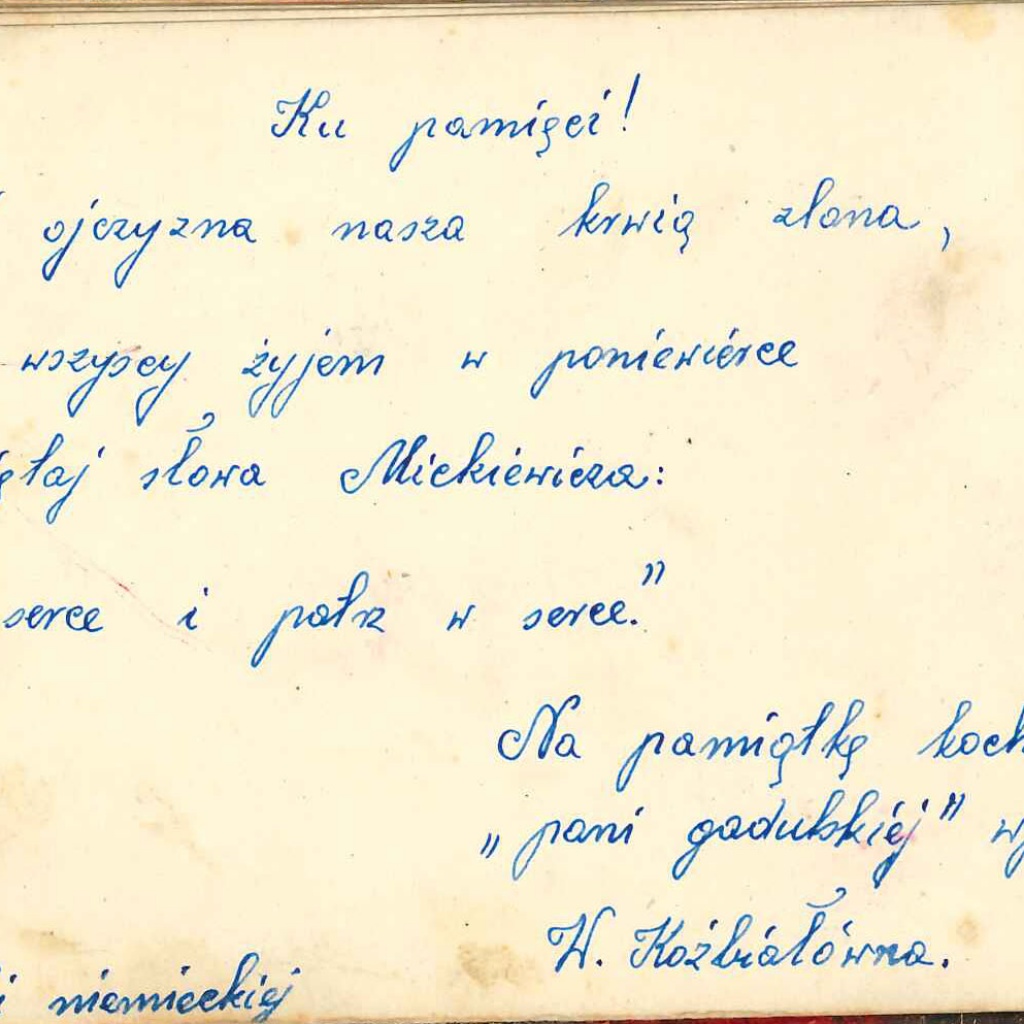 Ku pamięci!
ojczyzna nasza krwią zlana,
wszyscy żyjem w poniewierce
słowa Mickiewicza:
serce i patrz w serce."
Na pamiątkę
"pani gadulskiej"
W. Koźbiałówna.
niemieckiej